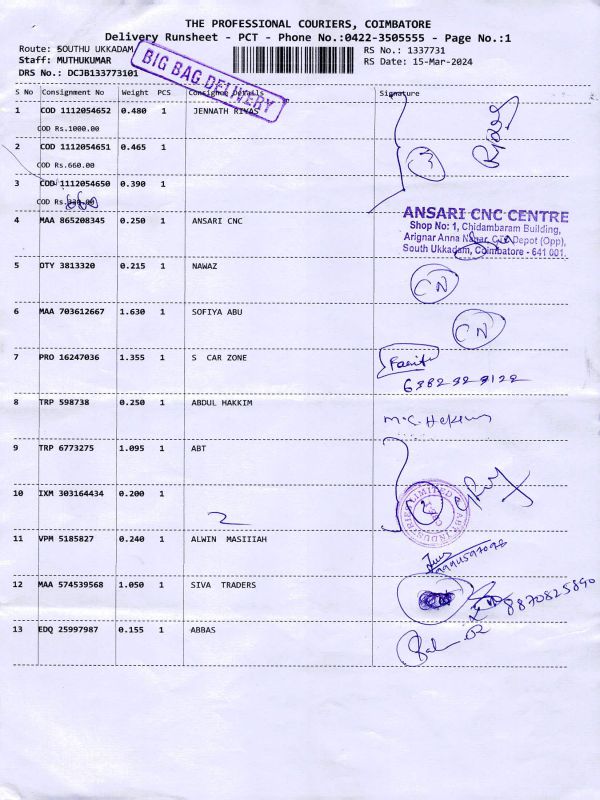 THE PROFESSIONAL COURIERS, COIMBATORE
Delivery Runsheet - PCT - Phone No.:0422-3505555 - Page No.:1
Route: SOUTHU UKKADAM RS No.: 1337731
Staff: MUTHUKUMAR RS Date: 15-Mar-2024
DRS No.: DCJB133773101
BIG BAG DELIVERY
S No Consignment No Weight PCS Consignee Details Signature
1 COD 1112054652 0.480 1 JENNATH RIYAS
COD Rs.1000.00
2 COD 1112054651 0.465 1
COD Rs.660.00
3
3 COD 1112054650 0.390 1
COD Rs.
4 MAA 865208345 0.250 1 ANSARI CNC
ANSARI CNC CENTRE
Shop No: 1, Chidambaram Building,
Arignar Anna Nagar, Depot (Opp),
South Ukkadam, Coimbatore - 641 001.
5 OTY 3813320 0.215 1 NAWAZ
CN
6 MAA 703612667 1.630 1 SOFIYA ABU
CN
7 PRO 16247036 1.355 1 S CAR ZONE
8 TRP 598738 0.250 1 ABDUL HAKKIM
9 TRP 6773275 1.095 1 ABT
10 IXM 303164434 0.200 1
2
2
ABT INDUSTRIES LIMITED
11 VPM 5185827 0.240 1 ALWIN MASIIIAH
12 MAA 574539568 1.050 1 SIVA TRADERS
8870825890
13 EDQ 25997987 0.155 1 ABBAS